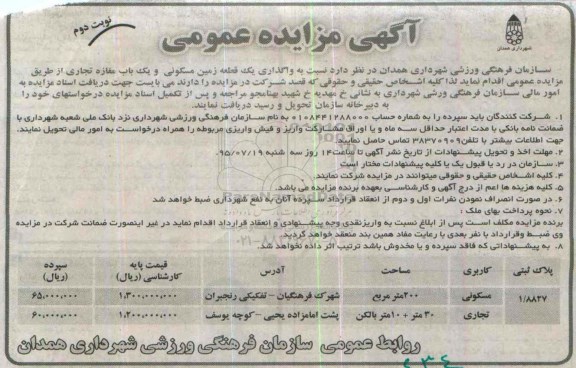 شهرداری همدان
آگهی مزایده عمومی
نوبت دوم
سازمان فرهنگی ورزشی شهرداری همدان در نظر دارد نسبت به واگذاری یک قطعه زمین مسکونی و یک باب مغازه تجاری از طریق
مزایده عمومی اقدام نماید لذا کلیه اشخاص حقیقی و حقوقی که قصد شرکت در مزایده را دارند می بایست جهت دریافت اسناد مزایده به
امور مالی سازمان فرهنگی ورشی شهرداری به نشانی خ مهدیه خ شهید بهنامجو مراجعه و پس از تکمیل اسناد مزایده درخواستهای خود را
به دبیرخانه سازمان تحویل و رسید دریافت نمایند.
۱. شرکت کنندگان باید سپرده را به شماره حساب ۰۱۰۸۴۴۱۲۸۸۰۰۰ به نام سازمان فرهنگی ورزشی شهرداری نزد بانک ملی شعبه شهرداری یا
ضمانت نامه بانکی با مدت اعتبار حداقل سه ماه و یا اوراق مشارکت واریز و فیش واریزی مربوطه را همراه درخواست به امور مالی تحویل نمایند.
جهت اطلاعات بیشتر با تلفن ۳۸۳۷۰۹۰۹ تماس حاصل نمایید.
۲. مهلت اخذ و تحویل پیشنهادات از تاریخ نشر آگهی تا ساعت ۱۴ روز سه شنبه ۹۵/۰۷/۱۹
۳. سازمان در رد یا قبول یک یا کلیه پیشنهادات مختار است
۴. کلیه اشخاص حقیقی و حقوقی میتوانند در مزایده شرکت نمایند.
۵. کلیه هزینه ها اعم از درج آگهی و کارشناسی بعهده برنده مزایده می باشد.
۶. در صورت انصراف نمودن نفرات اول و دوم از انعقاد قرارداد سپرده آنان به نفع شهرداری ضبط خواهد شد
۷. نحوه پرداخت بهای ملک :
برنده مزایده مکلف است پس از ابلاغ نسبت به واریز نقدی وجه پیشنهادی و انعقاد قرارداد اقدام نماید در غیر اینصورت ضمانت شرکت در مزایده
وی ضبط و قرارداد با نفر بعدی با رعایت مفاد همین بند منعقد خواهد گردید
۸. به پیشنهاداتی که فاقد سپرده و یا مخدوش باشد ترتیب اثر داده نخواهد شد.
پلاک ثبتی کاربری مساحت آدرس قیمت پایه کارشناسی (ریال) سپرده (ریال)
۱/۸۸۲۷ مسکونی ۲۰۰ متر مربع شهرک فرهنگیان - تفکیکی رنجبران ۱,۳۰۰,۰۰۰,۰۰۰ ۶۵,۰۰۰,۰۰۰
تجاری ۳۰ متر + ۱۰ متر بالکن پشت امامزاده یحیی - کوچه یوسف ۱,۲۰۰,۰۰۰,۰۰۰ ۶۰,۰۰۰,۰۰۰
روابط عمومی سازمان فرهنگی ورزشی شهرداری همدان